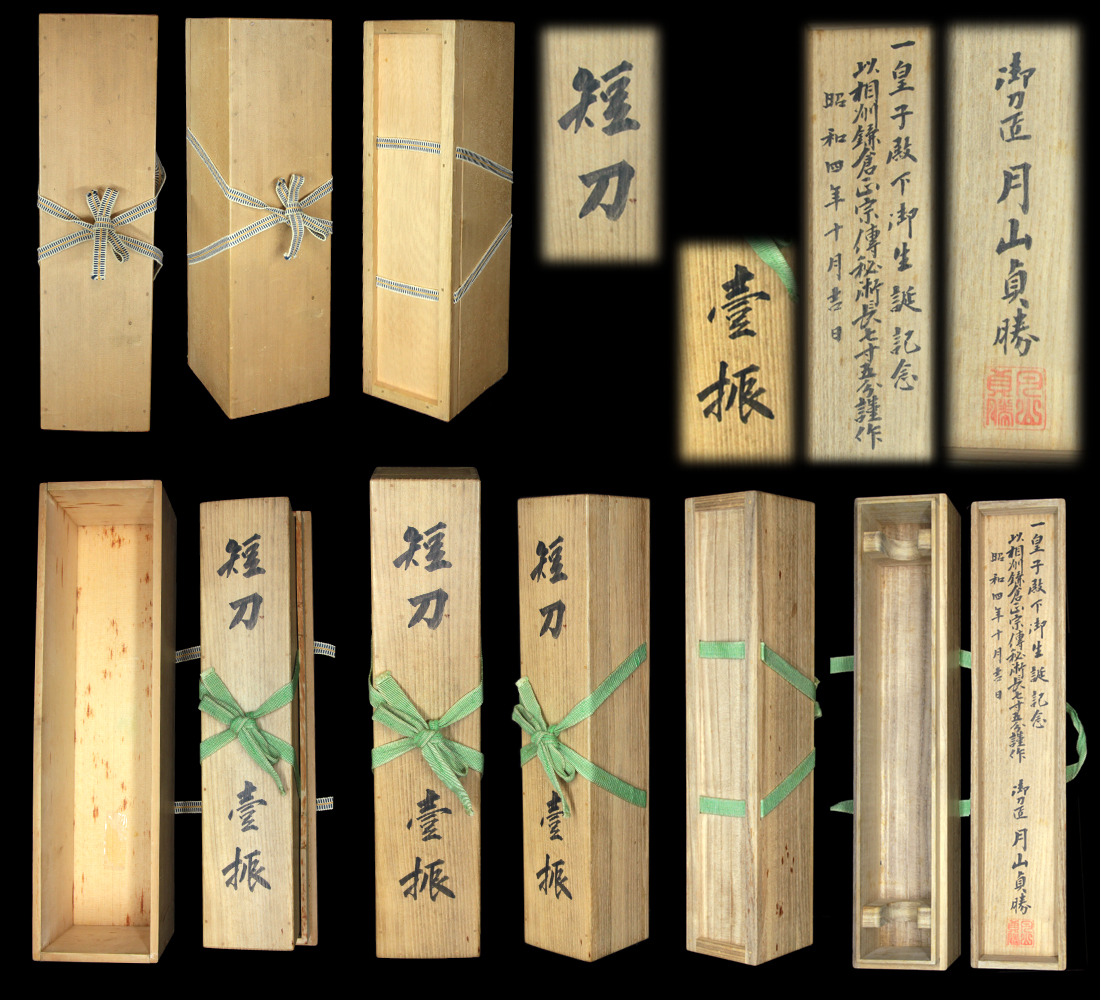 短刀
壹振
一皇子殿下御生誕記念
以相州鎌倉正宗傳秘術長七寸五分謹作
昭和四年十月吉日
御刀匠 月山貞勝
月山貞勝
短刀
壹振
短刀
壹振
短刀
壹振
一皇子殿下御生誕記念
以相州鎌倉正宗傳秘術長七寸五分謹作
昭和四年十月吉日
御刀匠 月山貞勝
月山貞勝